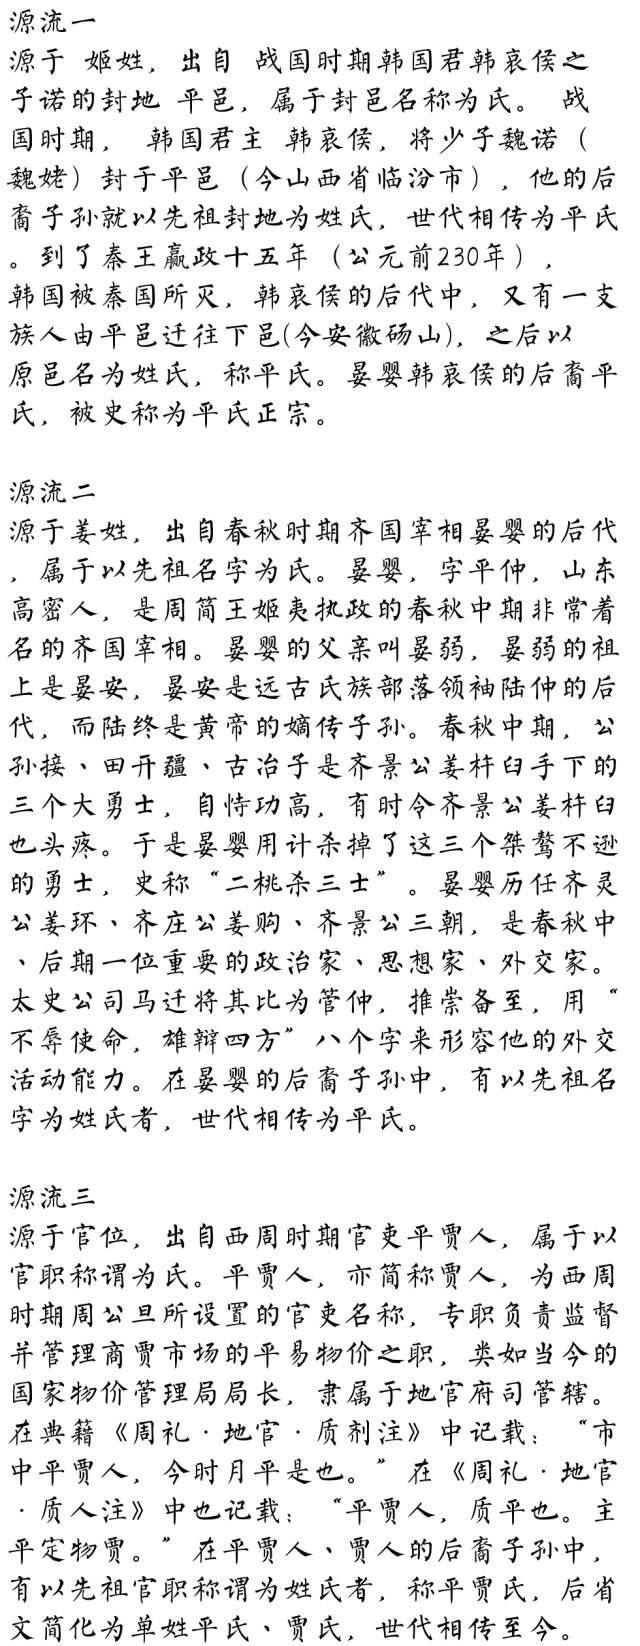 源流一
源于 姬姓，出自 战国时期韩国君韩哀侯之
子诺的封地 平邑，属于封邑名称为氏。 战
国时期， 韩国君主 韩哀侯，将少子魏诺（
魏姥）封于平邑（今山西省临汾市），他的后
裔子孙就以先祖封地为姓氏，世代相传为平氏
。到了秦王赢政十五年（公元前230年），
韩国被秦国所灭，韩哀侯的后代中，又有一支
族人由平邑迁往下邑(今安徽砀山)，之后以
原邑名为姓氏，称平氏。晏婴韩哀侯的后裔平
氏，被史称为平氏正宗。
源流二
源于姜姓，出自春秋时期齐国宰相晏婴的后代
，属于以先祖名字为氏。晏婴，字平仲，山东
高密人，是周简王姬夷执政的春秋中期非常着
名的齐国宰相。晏婴的父亲叫晏弱，晏弱的祖
上是晏安，晏安是远古氏族部落领袖陆仲的后
代，而陆终是黄帝的嫡传子孙。春秋中期，公
孙接、田开疆、古冶子是齐景公姜杵臼手下的
三个大勇士，自恃功高，有时令齐景公姜杵臼
也头疼。于是晏婴用计杀掉了这三个桀骜不逊
的勇士，史称“二桃杀三士”。晏婴历任齐灵
公姜环、齐庄公姜购、齐景公三朝，是春秋中
、后期一位重要的政治家、思想家、外交家。
太史公司马迁将其比为管仲，推崇备至，用“
不辱使命，雄辩四方”八个字来形容他的外交
活动能力。在晏婴的后裔子孙中，有以先祖名
字为姓氏者，世代相传为平氏。
源流三
源于官位，出自西周时期官吏平贾人，属于以
官职称谓为氏。平贾人，亦简称贾人，为西周
时期周公旦所设置的官吏名称，专职负责监督
并管理商贾市场的平易物价之职，类如当今的
国家物价管理局局长，隶属于地官府司管辖。
在典籍《周礼·地官·质剂注》中记载：“市
中平贾人，今时月平是也。”在《周礼·地官
·质人注》中也记载：“平贾人，质平也。主
平定物贾。”在平贾人、贾人的后裔子孙中，
有以先祖官职称谓为姓氏者，称平贾氏，后省
文简化为单姓平氏、贾氏，世代相传至今。